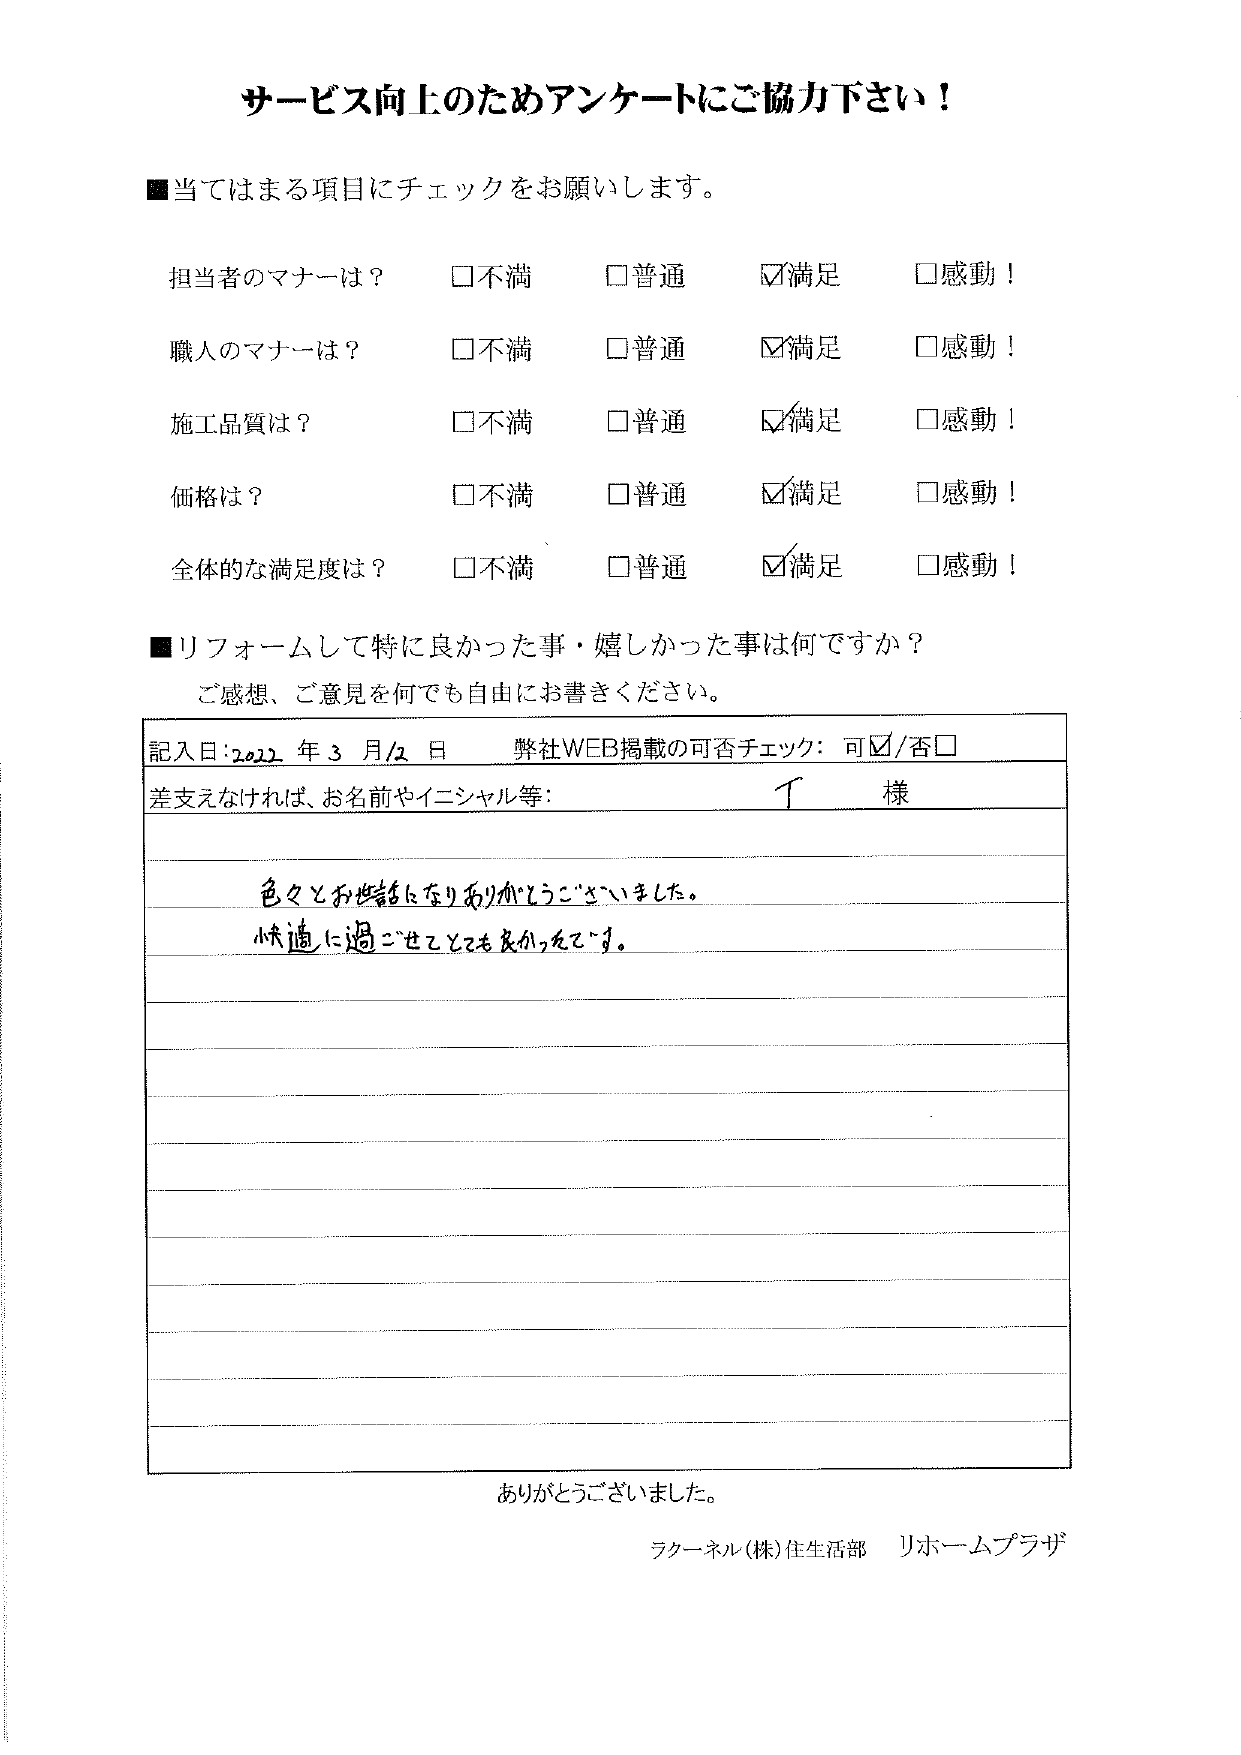 サービス向上のためアンケートにご協力下さい！
■当てはまる項目にチェックをお願いします。
担当者のマナーは？ □不満 □普通 ☑満足 □感動！
職人のマナーは？ □不満 □普通 ☑満足 □感動！
施工品質は？ □不満 □普通 ☑満足 □感動！
価格は？ □不満 □普通 ☑満足 □感動！
全体的な満足度は？ □不満 □普通 ☑満足 □感動！
■リフォームして特に良かった事・嬉しかった事は何ですか？
ご感想、ご意見を何でも自由にお書きください。
記入日：2022 年 3 月 12 日 弊社WEB掲載の可否チェック： 可☑/否□
差支えなければ、お名前やイニシャル等： イ 様
色々とお世話になりありがとうございました。
快適に過ごせてとても良かったです。
ありがとうございました。
ラクーネル（株）住生活部 リホームプラザ